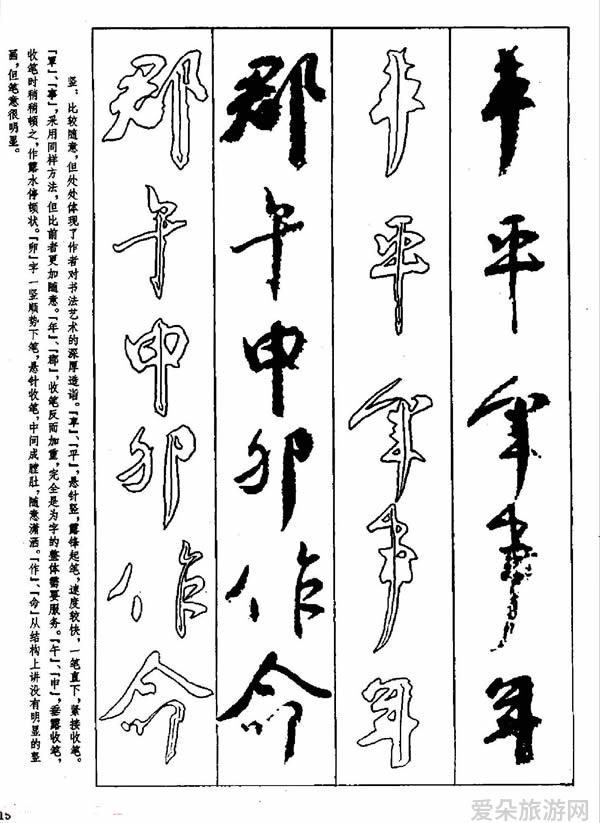 平
事
年
平
事
年
郡
午
申
卯
作
命
郡
午
申
卯
作
命
竖:比较随意,但处处体现了作者对书法艺术的深厚造诣。『』、『平』,悬针竖,露锋起笔,速度较快,一笔直下,紧接收笔。
『』、『事』,采用同样方法,但比前者更加随意。『年』、『郡』,收笔反而加重,完全是为字的整体需要服务。『午』、『申』,垂露收笔,
收笔时稍稍顿之,作露水停顿状。『卯』字一竖顺势下笔,悬针收笔,中间成膛肚,随意潇洒。『作』、『命』从结构上讲没有明显的竖
画,但笔意很明显。
15
爱朵旅游网